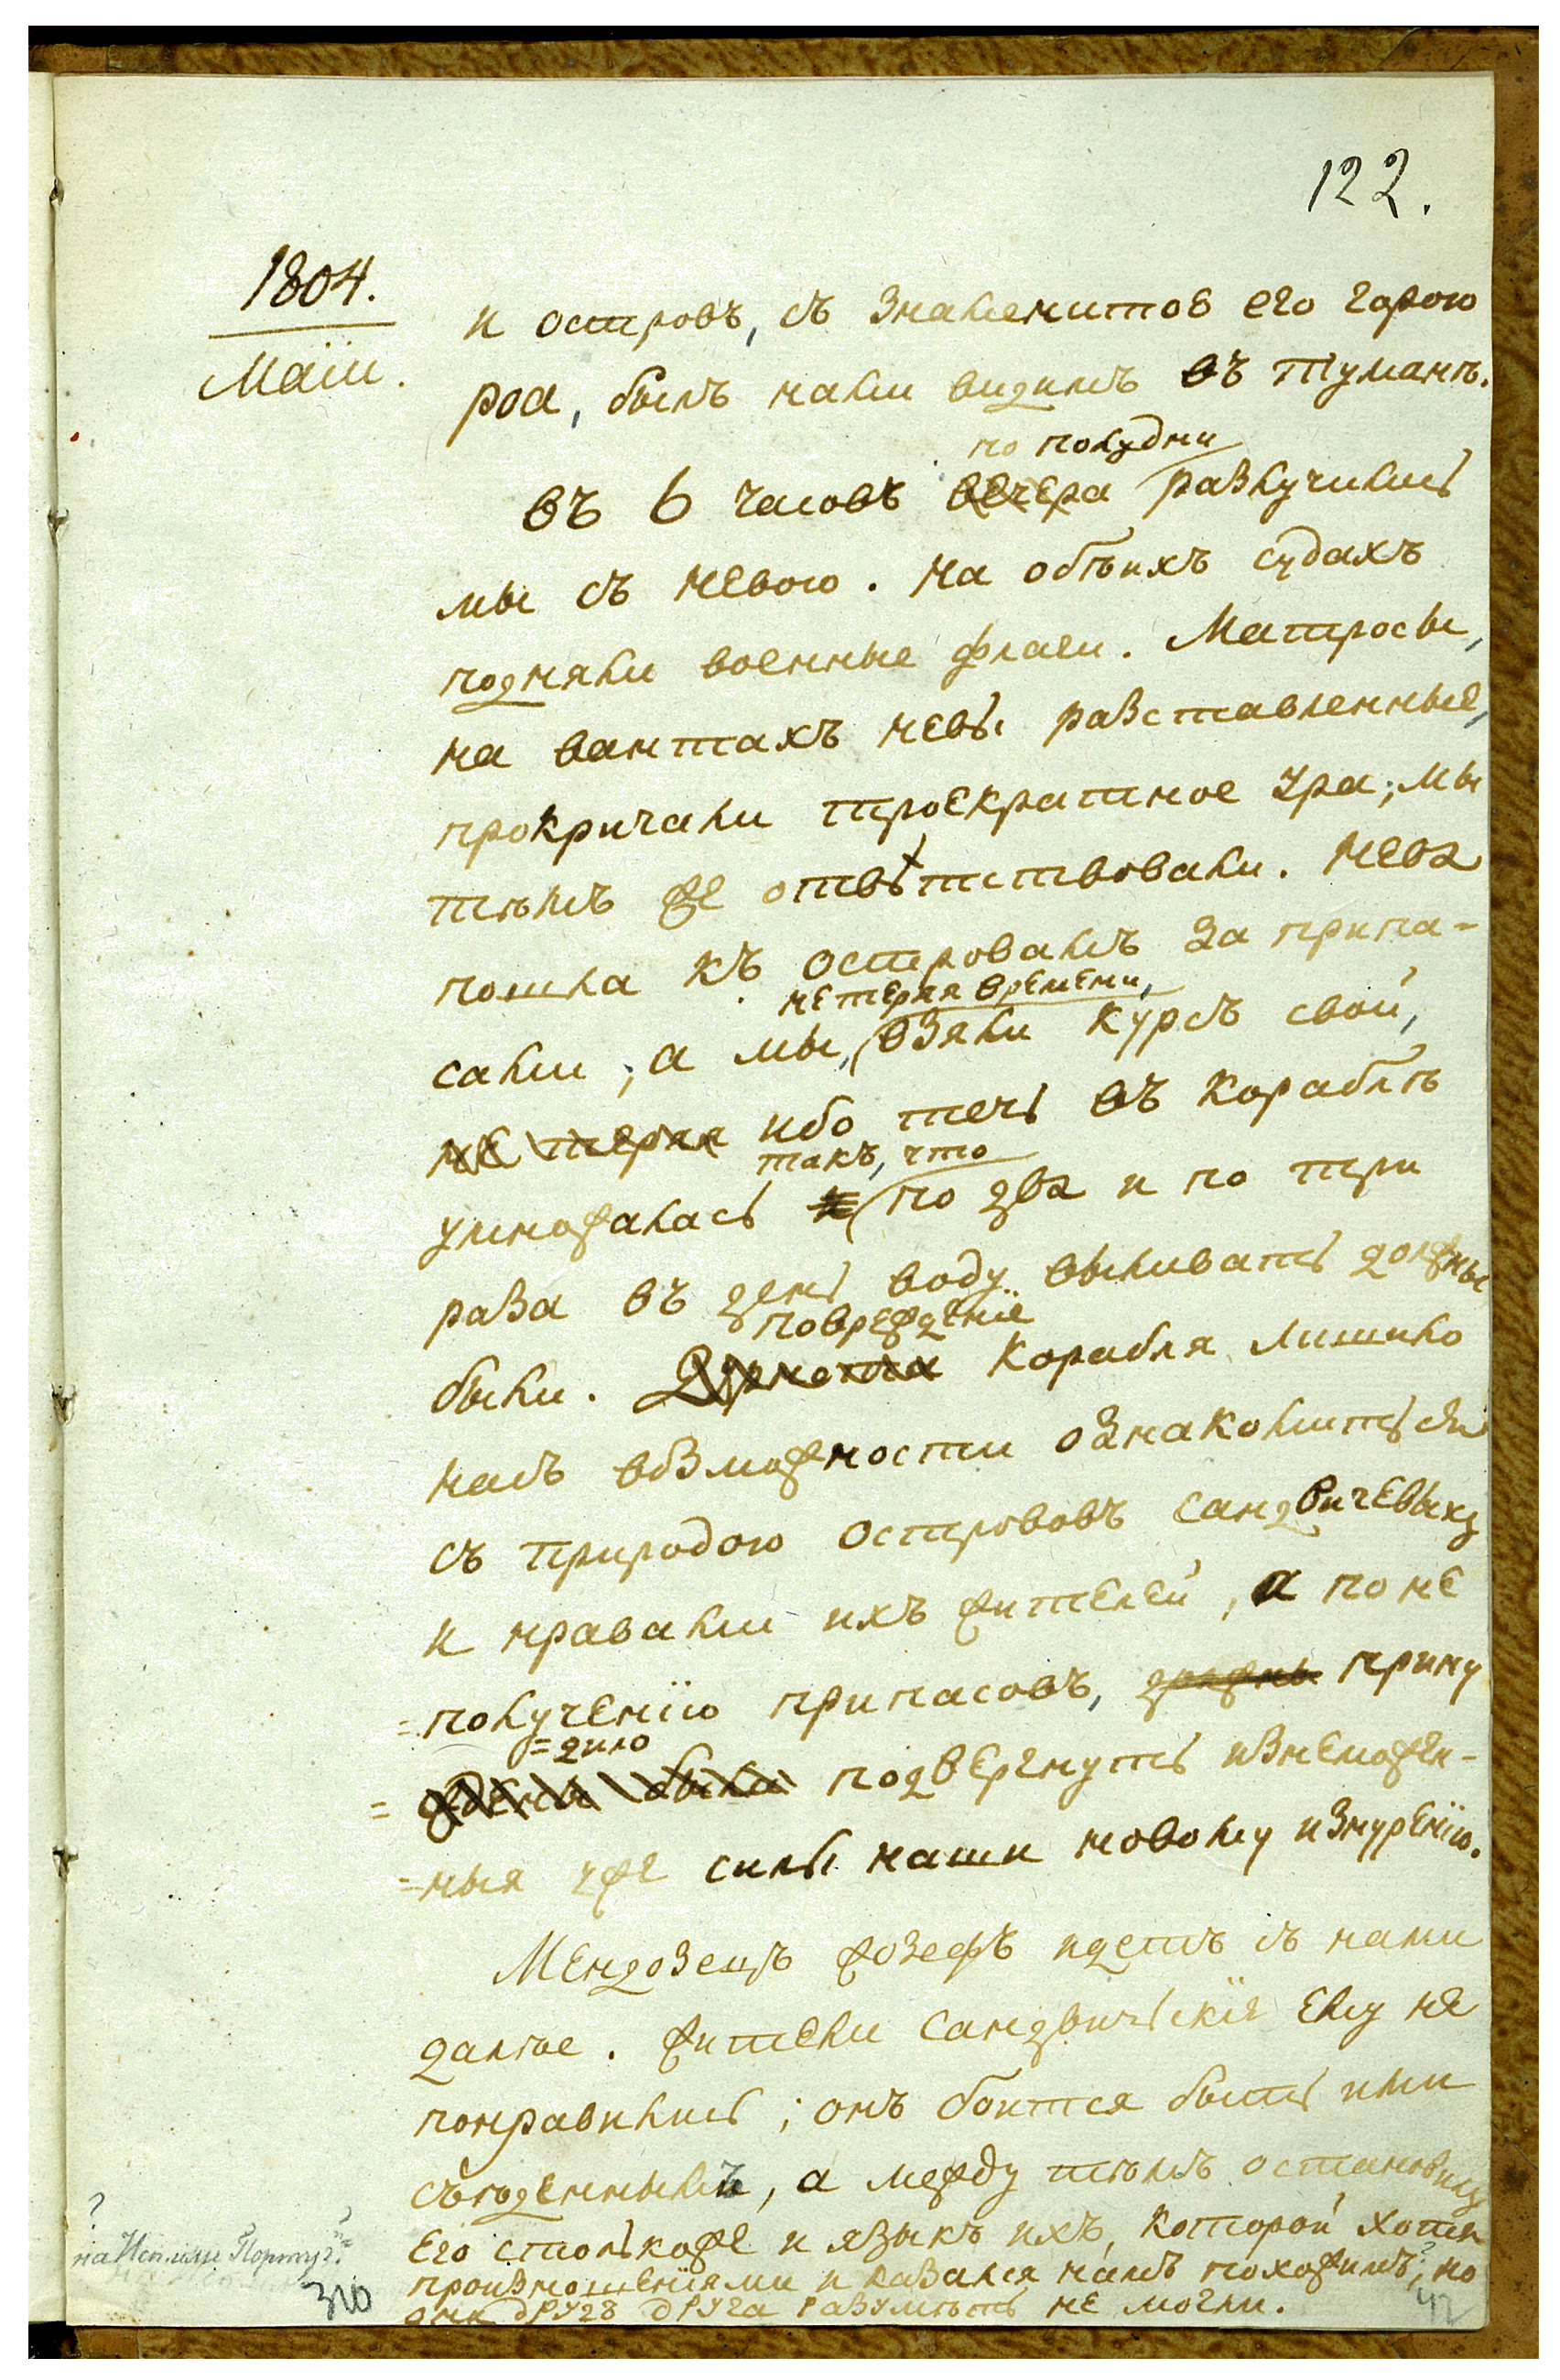 122.
1804.
Маiи.
и островъ, съ знаменитов его горою
роа, былъ нами видимъ въ туманѣ.
по полудни
въ 6 часовъ вечера разлучились
мы съ невою. На обѣихъ судахъ
подняли военные флаги. Матросы,
на вантахъ невы разставленные,
прокричали троекратное ура; мы
тѣмъ же отвѣтствовали. Нева
пошла къ островамъ за припа-
не теряя времени,
сами; а мы, взяли курсъ свой,
не теряя ибо течь въ кораблѣ
такъ, что
умножалась и по два и по три
раза въ день воду выливать должны
поврежденiе
были. корабля лишило
насъ возможности ознакомиться
съ природою острововъ сандвичевыхъ
и нравами ихъ жителей, а по не
=полученiю припасовъ, прину
=дило
= ждены были подвергнуть изнеможен-
=ныя уже силы наши новому изнуренiю.
Мендозецъ жозефъ идетъ съ нами
далѣе. жители Сандвичьскiя ему не
понравились; онъ боится быть ими
съѣденнымъ, а между тѣмъ остановилъ
Его столькоже и языкъ ихъ, которой хотя
произношенiями и казался намъ похожимъ; но
они другъ друга разумѣть не могли.
? ?
на Испан. или Португ.=
310
42